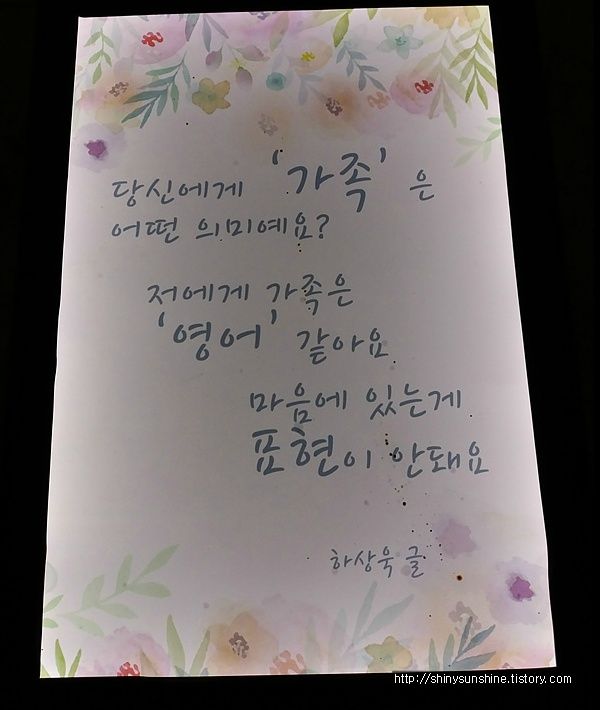 당신에게 '가족'은
어떤 의미예요?
저에게 가족은
'영어' 같아요
마음에 있는게
표현이 안돼요
하상욱 글
http://shinysunshine.tistory.com